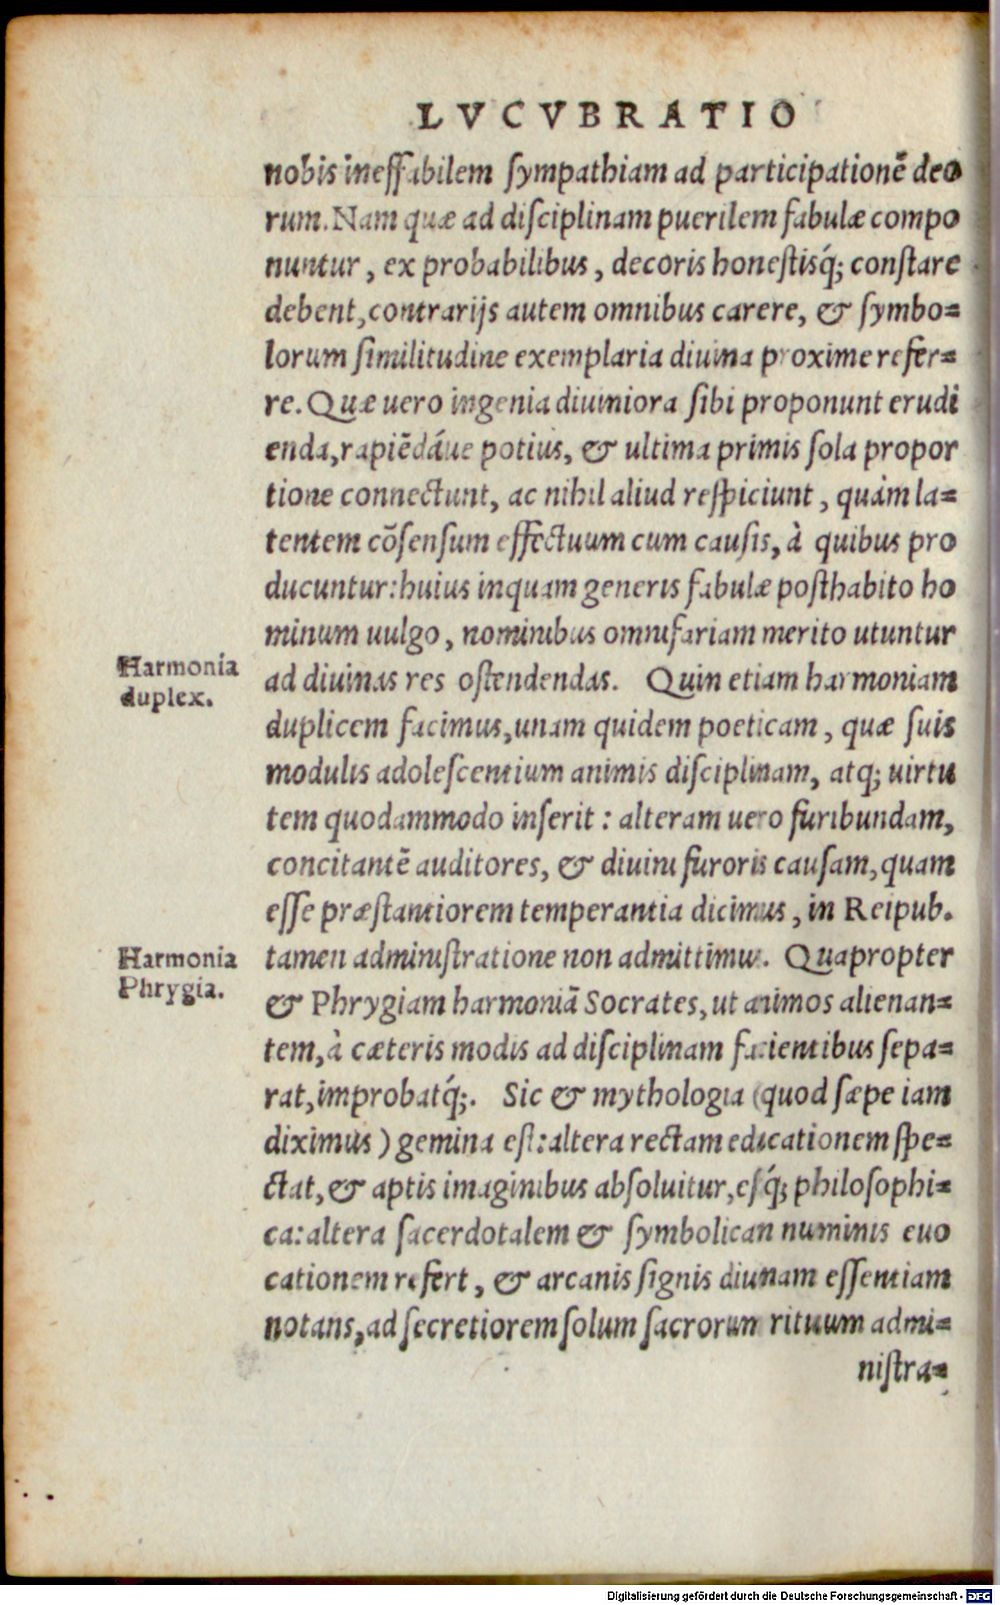 LVCVBRATIO
nobis ineffabilem ſympathiam ad participationē deo
rum. Nam quæ ad diſciplinam puerilem fabulæ compo
nuntur, ex probabilibus, decoris honeſtisq́; conſtare
debent, contrarijs autem omnibus carere, & ſymbo=
lorum ſimilitudine exemplaria diuina proxime refer=
re. Quæ uero ingenia diuiniora ſibi proponunt erudi
enda, rapiēdáue potius, & ultima primis ſola propor
tione connectunt, ac nihil aliud reſpiciunt, quàm la=
tentem cōſenſum effectuum cum cauſis, à quibus pro
ducuntur: huius inquam generis fabulæ poſthabito ho
minum uulgo, nominibus omnifariam merito utuntur
Harmonia
duplex.
ad diuinas res oſtendendas. Quin etiam harmoniam
duplicem facimus, unam quidem poeticam, quæ ſuis
modulis adoleſcentium animis diſciplinam, atq; uirtu
tem quodammodo inſerit: alteram uero furibundam,
concitantē auditores, & diuini furoris cauſam, quam
eſſe præſtantiorem temperantia dicimus, in Reipub.
Harmonia
Phrygia.
tamen adminiſtratione non admittimus. Quapropter
& Phrygiam harmoniā Socrates, ut animos alienan=
tem, à cæteris modis ad diſciplinam facientibus ſepa=
rat, improbatq́;. Sic & mythologia (quod ſæpe iam
diximus) gemina eſt: altera rectam educationem ſpe=
ctat, & aptis imaginibus abſoluitur, eſq́; philoſophi=
ca: altera ſacerdotalem & ſymbolican numinis euo
cationem refert, & arcanis ſignis diuinam eſſentiam
notans, ad ſecretiorem ſolum ſacrorum rituum admi=
niſtra=
Digitalisierung gefördert durch die Deutsche Forschungsgemeinschaft - DFG